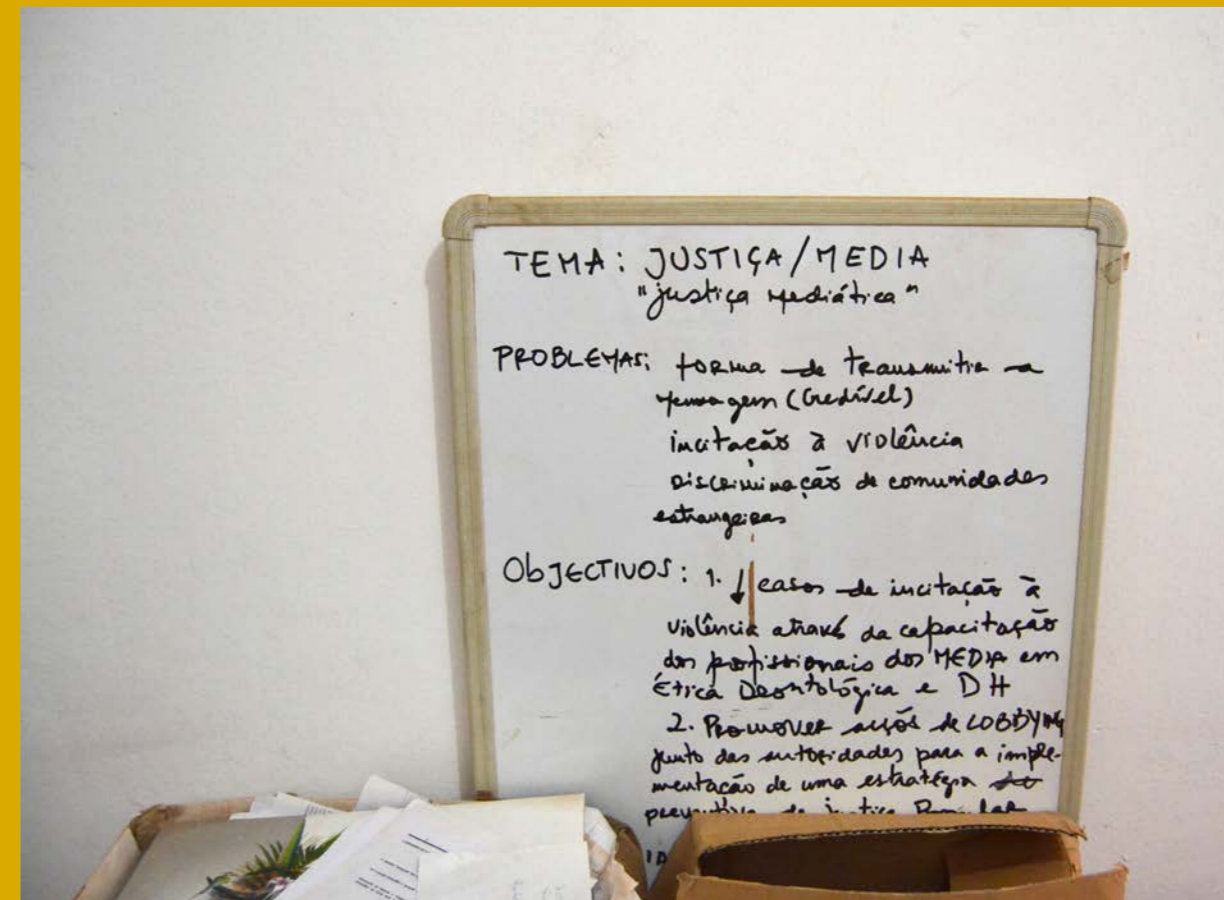 TEMA: JUSTIÇA/MEDIA
"justiça mediática"
PROBLEMAS: forma de transmitir a
mensagem (Credível)
incitação à violência
Discriminação de comunidades
estrangeiras
ObJECTIVOS: 1. ↓ casos de incitação à
violência através da capacitação
dos profissionais dos MEDIA em
Ética Deontológica e DH
2. Promover acções de LOBBYING
junto das autoridades para a imple-
mentação de uma estratégia
preventiva de justiça Popular